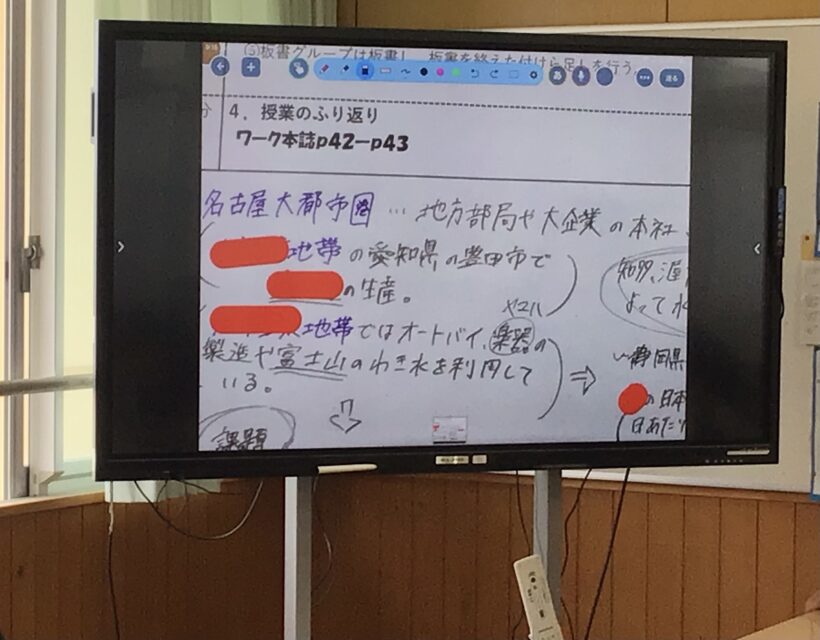 (5)板書グループは板書し、板書を終えた付けら足しを行う
分
4. 授業のふり返り
ワーク本誌p42ーp43
名古屋大都市圏…地方部局や大企業の本社
地帯の愛知県の豊田市で
の生産。
ヤマハ
地帯ではオートバイ、楽器の
製造や富士山のわき水を利用して
いる。
課題
知多、渥
よって水
静岡県
の日本
日あたり
あ
戻る